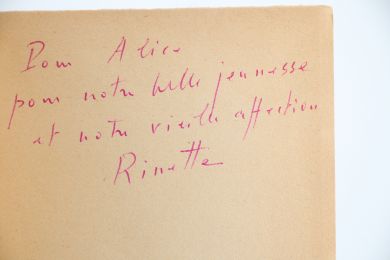 Pour Alice
pour notre belle jeunesse
et notre vieille affection
Rinette